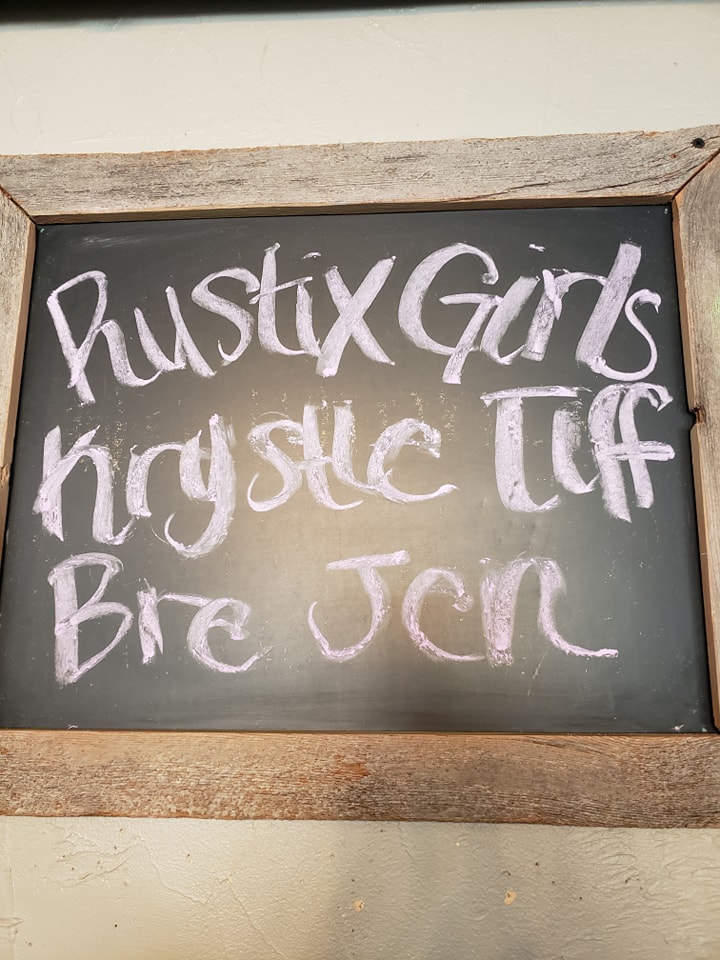 Rustix Girls
Krystle Tiff
Bre Jen